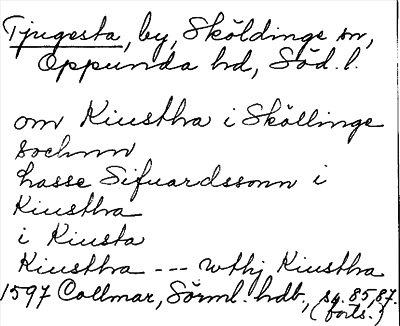 Tjugesta, by, Sköldinge sn,
Oppunda hd, Söd. l.
om Kiustha i Sköllinge
sochnn
hasse Sifuardssonn i
Kiustha
i Kiusta
Kiustha --- wthj Kiustha
1597 Collmar, Sörml. hdb., sq. 85, 87.
(forts.)